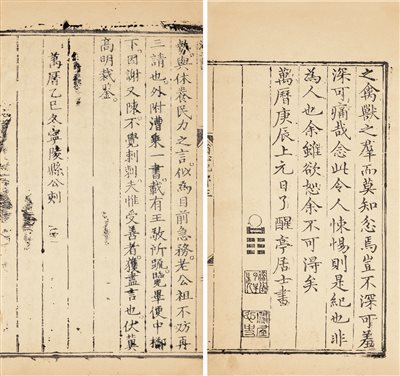 之禽獸之羣而莫知忿焉豈不深可羞
深可痛哉念此令人悚惕則是紀也非
為人也余雖欲恕余不可得矣
萬曆庚辰上元日了醒亭居士書
與休養民力之言似為目前急務老公祖不妨再
三請也外附漕乘一書載有王敬所疏覽畢便中擲
下因謝又陳不覺剌剌夫惟受善者獲盡言也伏冀
高明裁鉴
萬曆乙巳冬寧陵縣公刻